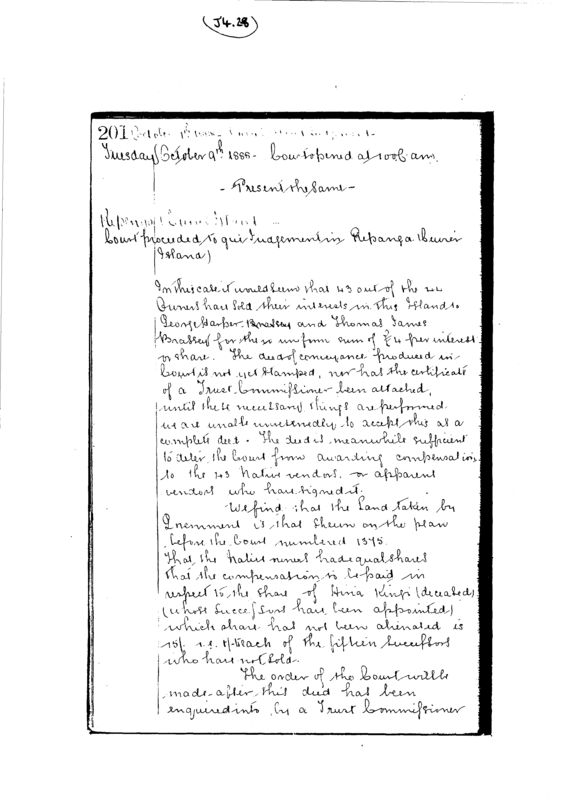 (J4.28)
201
Tuesday October 9th 1888 - Court opened at 10 of am.
- Present the Same -
Court proceeded to give Judgement in Repanga (Cuvier
Island)
In this case it would seem that 43 out of the 44
Owners have sold their interests in this Island to
George Harper and Thomas James
for the uniform sum of £4 per interest
or share. The deed of conveyance produced in
Court is not yet stamped, nor has the certificate
of a Trust Commissioner been attached,
until these necessary things are performed
we are unable unreservedly to accept this as a
complete deed. The deed is meanwhile sufficient
to deter the Court from awarding compensation
to the 43 Native vendors, or apparent
vendors who have signed it.
We find that the Land taken by
Government is that shewn on the plan
before the Court numbered 1395.
That the Native owners had equal shares
that the compensation to be paid in
respect to the share of Hiria Kingi (deceased)
(whose Successors have been appointed)
which share has not been alienated is
15/- i.e. 1/- to each of the fifteen Successors
who have not sold.
The order of the Court will be
made after this deed has been
enquired into by a Trust Commissioner